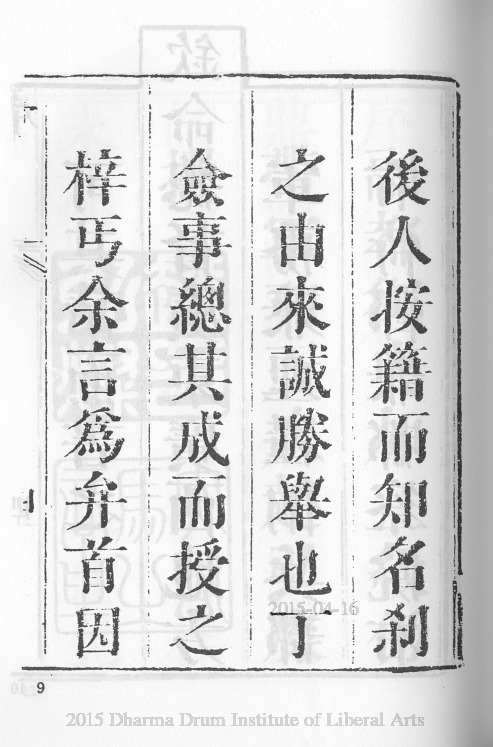 後人按籍而知名剎
之由來誠勝舉也丁
僉事總其成而授之
梓丐余言為弁首因
9
2015-04-16
2015 Dharma Drum Institute of Liberal Arts